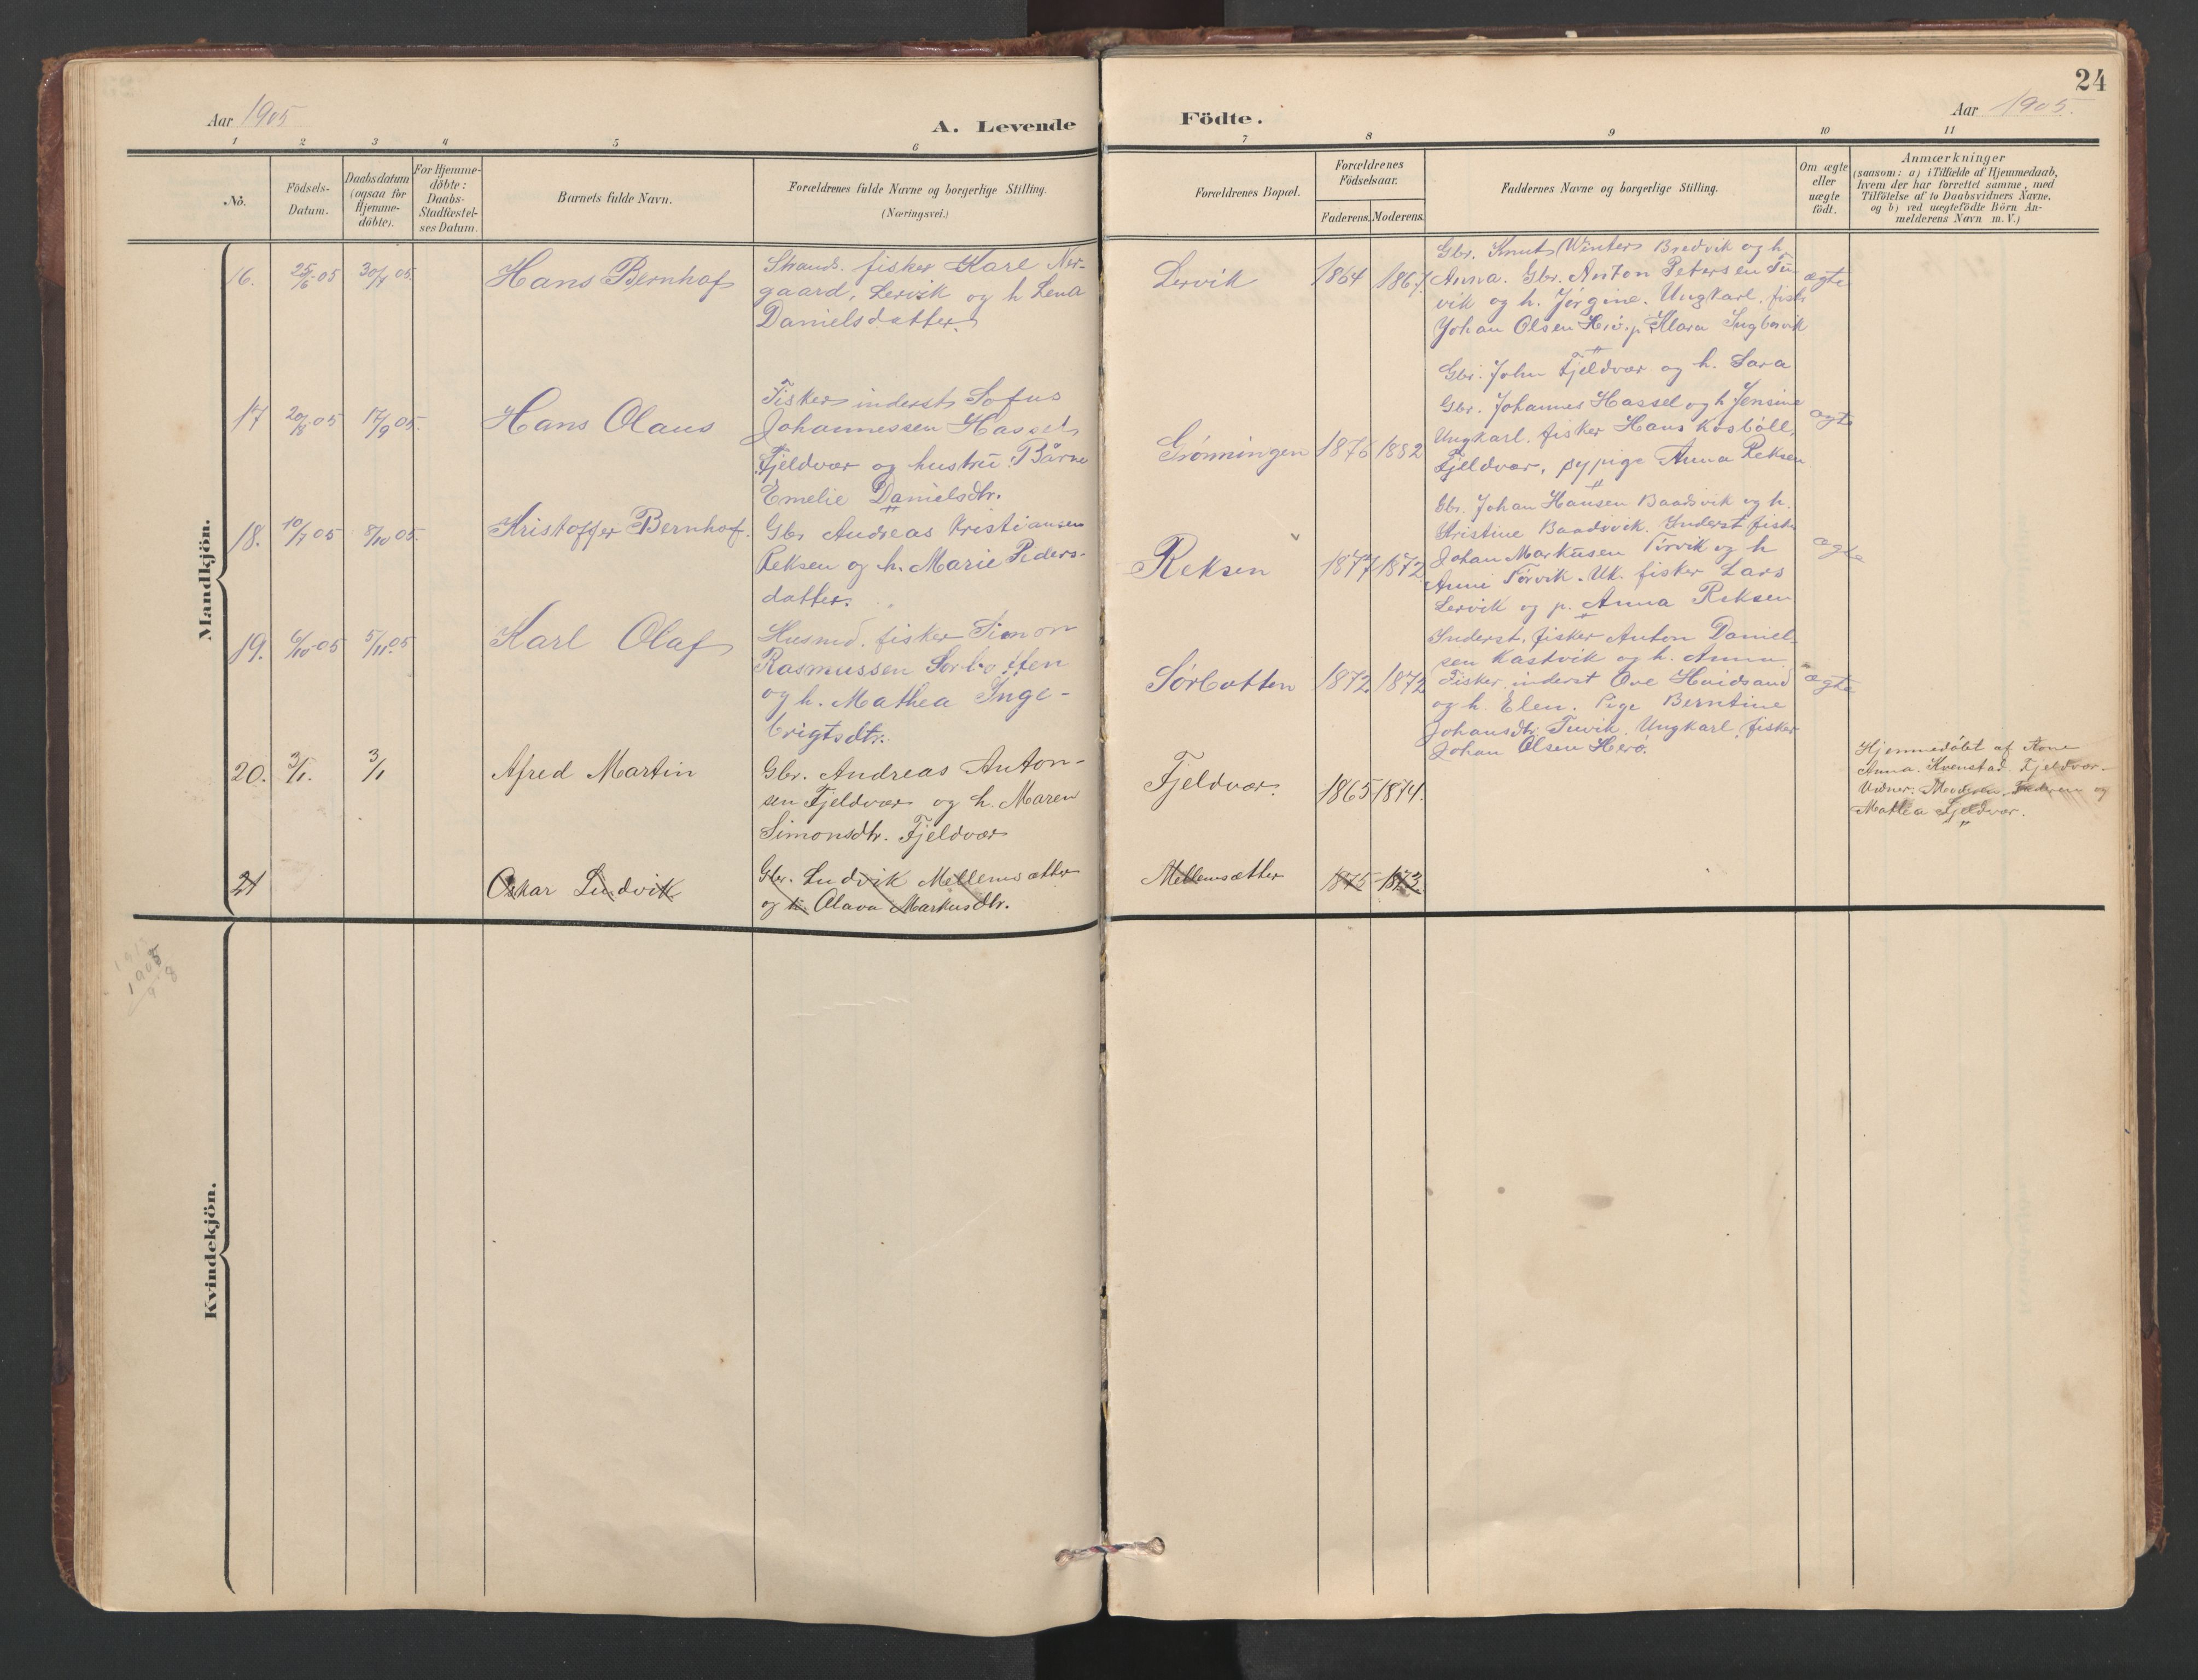 24
Aar 1905
A. Levende
Födte.
Aar 1905.
1 2 3 4 5 6 7 8 9 10 11
No.
Födsels-
Datum.
Daabsdatum
(ogsaa for
Hjemme-
döbte).
For Hjemme-
döbte:
Daabs-
Stadfæstel-
ses Datum.
Barnets fulde Navn.
Forældrenes fulde Navne og borgerlige Stilling.
(Næringsvei.)
Forældrenes Bopæl.
Forældrenes
Födselsaar.
Faderens. Moderens.
Faddernes Navne og borgerlige Stilling.
Om ægte
eller
uægte
födt.
Anmærkninger
(saasom: a) i Tilfælde af Hjemmedaab,
hvem der har forrettet samme, med
Tilföielse af to Daabsvidners Navne,
og b) ved uægtefödte Börn An-
melderens Navn m. V.)
Mandkjön.
16. 25/6 05 30/7 05. Hans Bernhof
Strands. fisker Karl Ner-
gaard, Lervik og h Lena
Danielsdatter.
Lervik 1864 1867
Gbr. Knut Winters Bredvik og h.
Anna. Gbr. Anton Petersen Tu
vik og h. Jørgine. Ungkarl. fisk
Johan Olsen Herø. p. Klara Ingborvik
ægte
17 20/8 05 17/9 05. Hans Olaus
Fisker inderst Sofus
Johannessen Hassel
Fjeldvær og hustru Bårne
Emelie Danielsdtr.
Grønningen 1876 1882
Gbr. John Fjeldvær og h. Sara
Gbr. Johannes Hassel og h Jensine
Ungkarl. fisker Hans Kosböll,
Fjeldvær, pypige Anna Reksen
ægte
18. 10/7 05 8/10 05. Kristoffer Bernhof.
Gbr Andreas Kristiansen
Reksen og h. Marie Peders-
datter.
Reksen 1877 1872
Gbr. Johan Hansen Baadsvik og h.
Kristine Baadsvik. Inderst fisk
Johan Markusen Torvik og h
Anne Torvik. Uk. fisker Lars
Lervik og p. Anna Reksen
ægte
19. 6/10 05 5/11 05 Karl Olaf
Husmd. fisker Simon
Rasmussen Sørbotten
og h. Mathea Inge-
brigtsdtr.
Sørbotten 1872 1872
Inderst, fisker Anton Daniel-
sen Kastvik og h. Anna
Fisker inderst Ove Hvidsand
og h. Elen. Pige Berntine
Johansdtr. Tuvik. Ungkarl, fisker
Johan Olsen Herø.
ægte
20. 3/1. 3/1 Afred Martin
Gbr. Andreas Anton-
sen Fjeldvær og h. Maren
Simonsdtr. Fjeldvær
Fjeldvær. 1865 1874.
Hjemmedøbt af Kone
Anna Kvenstad. Fjeldvær.
Vidner. Moderen, Faderen og
Mathea Fjeldvær.
21 Oskar Ludvik
Gbr. Ludvik Mellemsætter
og h. Olava Markusdtr.
Mellemsætter 1875 1873.
1905
Kvindekjön.